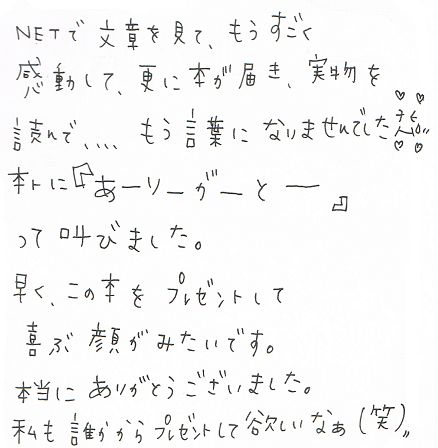 NETで文章を見て、もうすごく
感動して、更に本が届き、実物を
読んで、.... もう言葉になりませんでした
本トに『ありーがーとー』
って叫びました。
早く、この本をプレゼントして
喜ぶ顔がみたいです。
本当にありがとうございました。
私も誰かからプレゼントして欲しいなぁ(笑)"